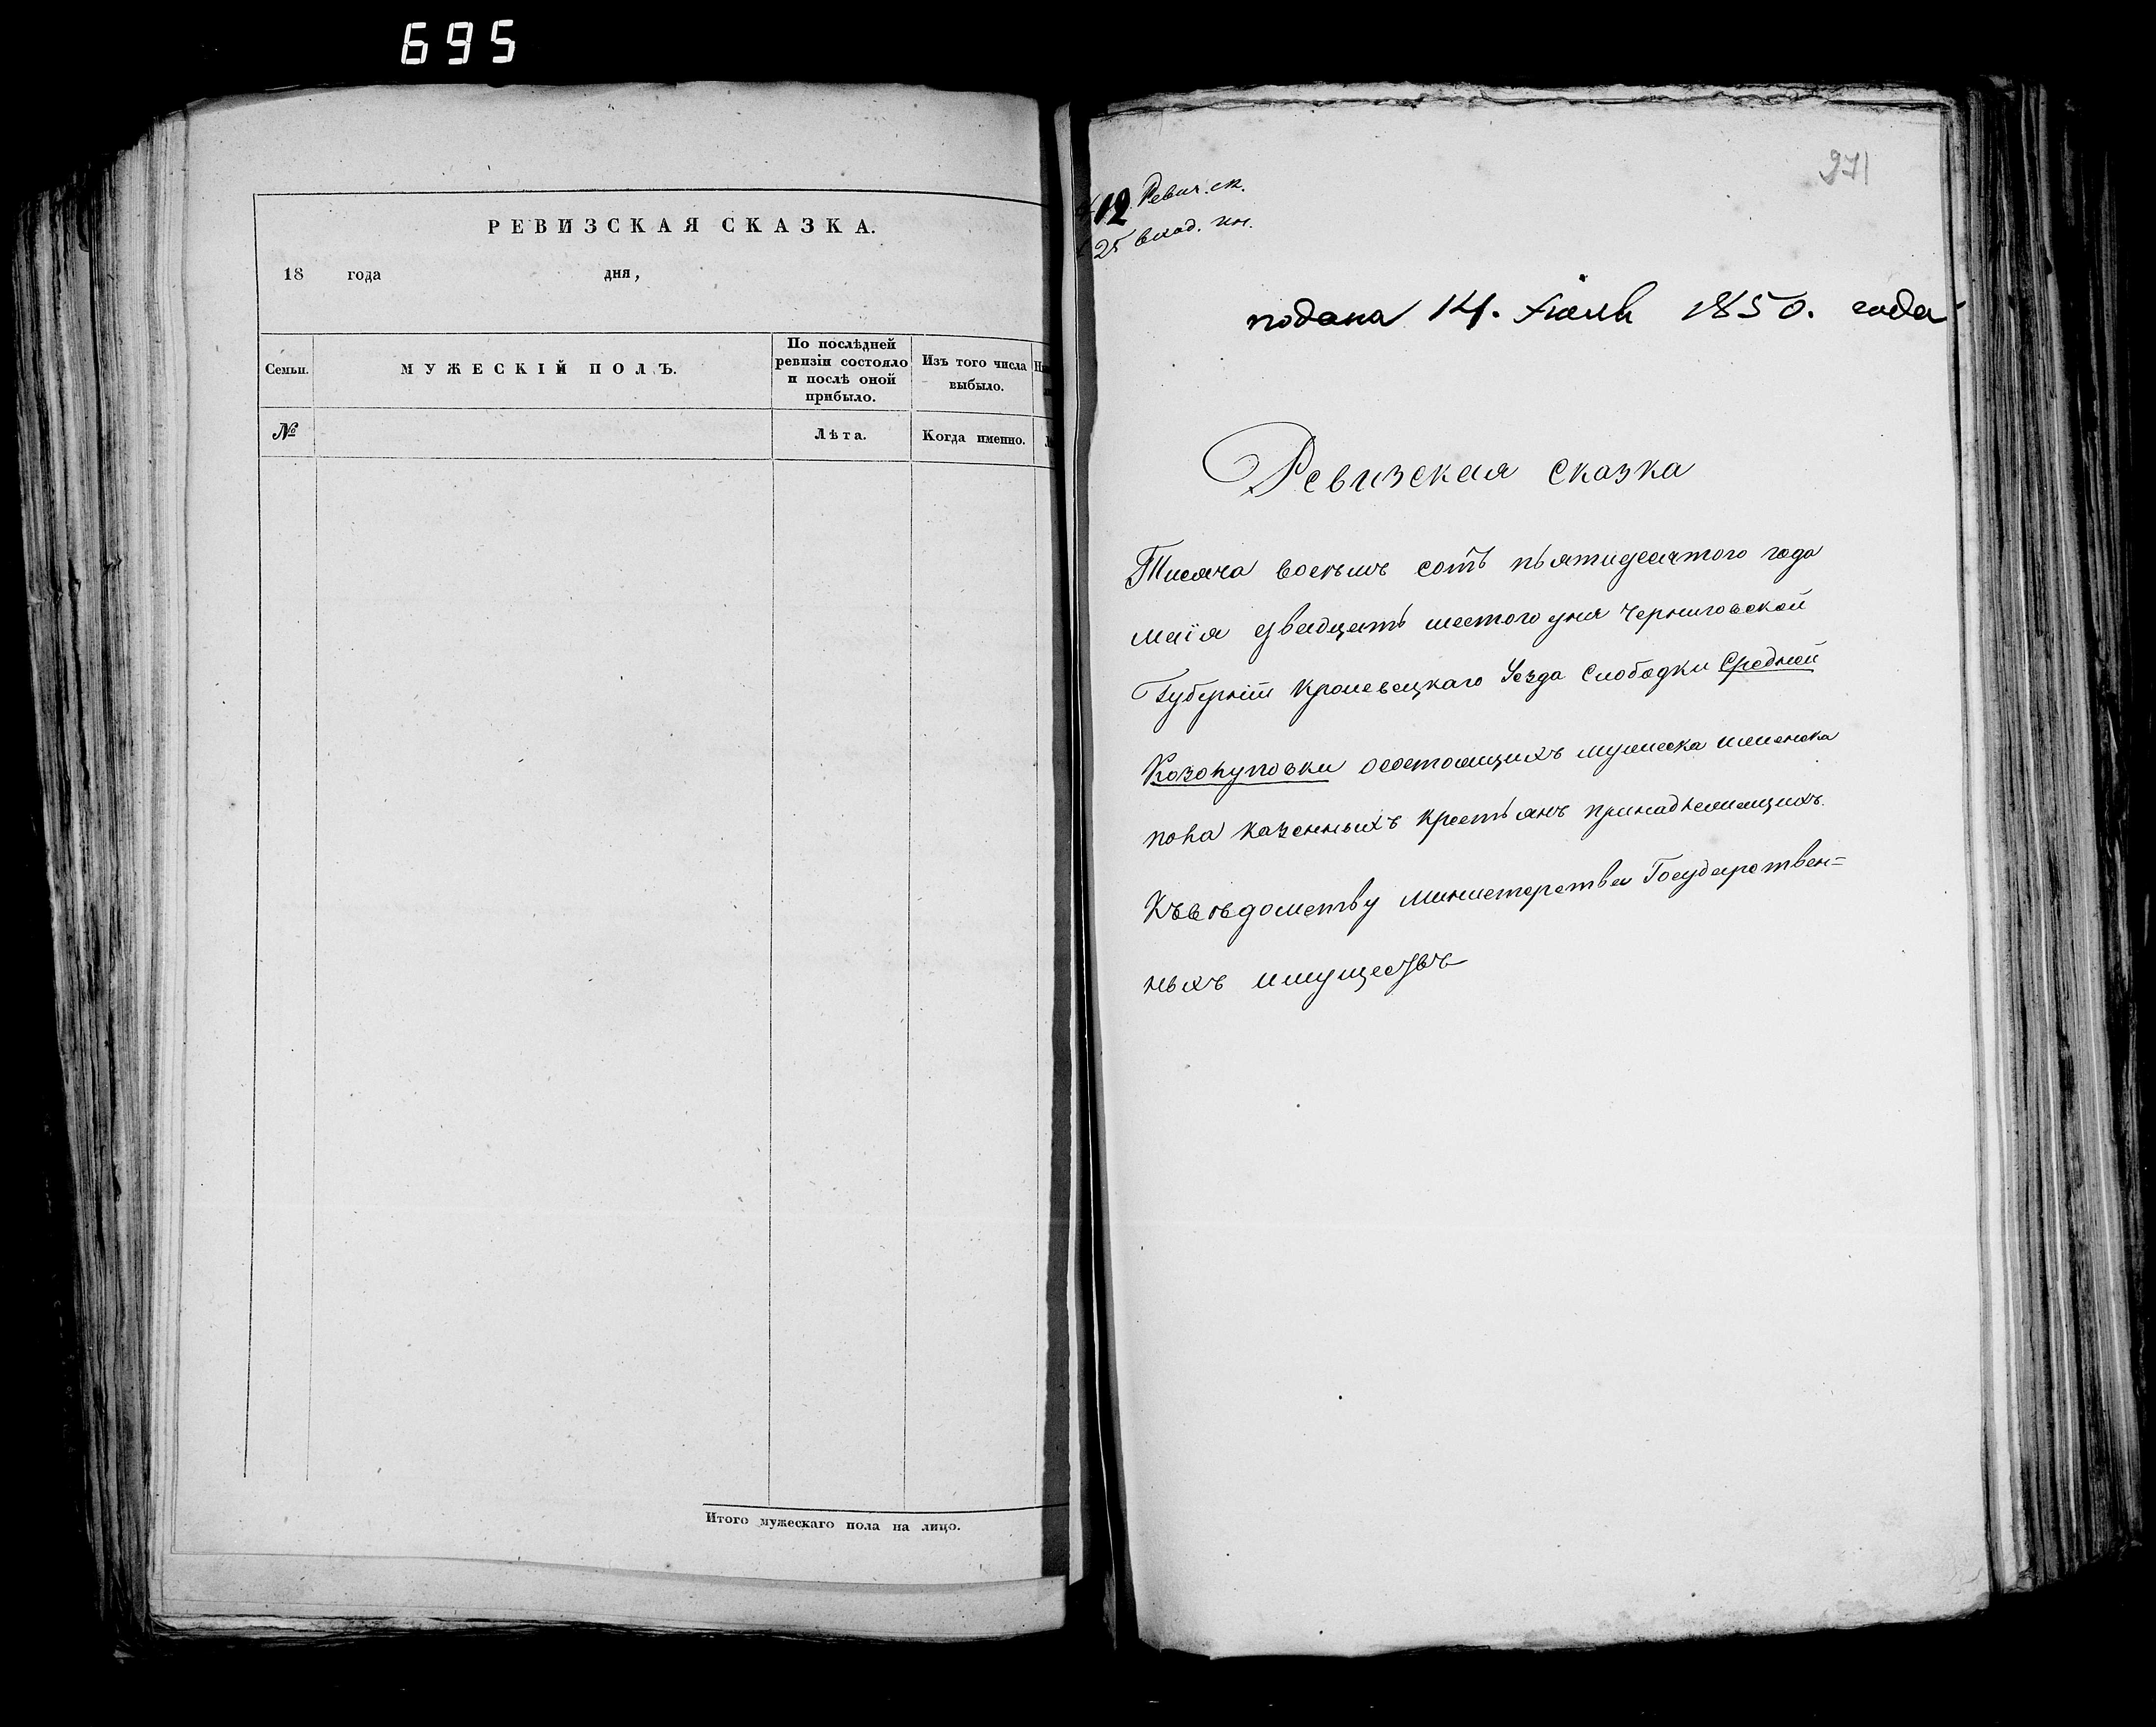 695
РЕВИЗСКАЯ СКАЗКА.
18 года дня,
Семьи.
МУЖЕСКІЙ ПОЛЪ.
По послѣдней
ревизіи состояло
и послѣ оной
прибыло.
Изъ того числа
выбыло.
№
Лѣта.
Когда именно.
Итого мужескаго пола на лицо.
271
12 Ревиз. ск.
25 вход. кн.
подана 14. Іюля 1850. года
Ревизская сказка
Тисяча восемъ сотъ пьятидесятого года
маія двадцать шестого дня Черниговской
Губерніи Кролевецкаго Уезда Слободки Средней
Козопуповки о состоящихъ мужеска женска
пола казенныхъ крестьянъ принадлежащихъ
Къ ведомству министерства Государствен=
ныхъ имуществъ